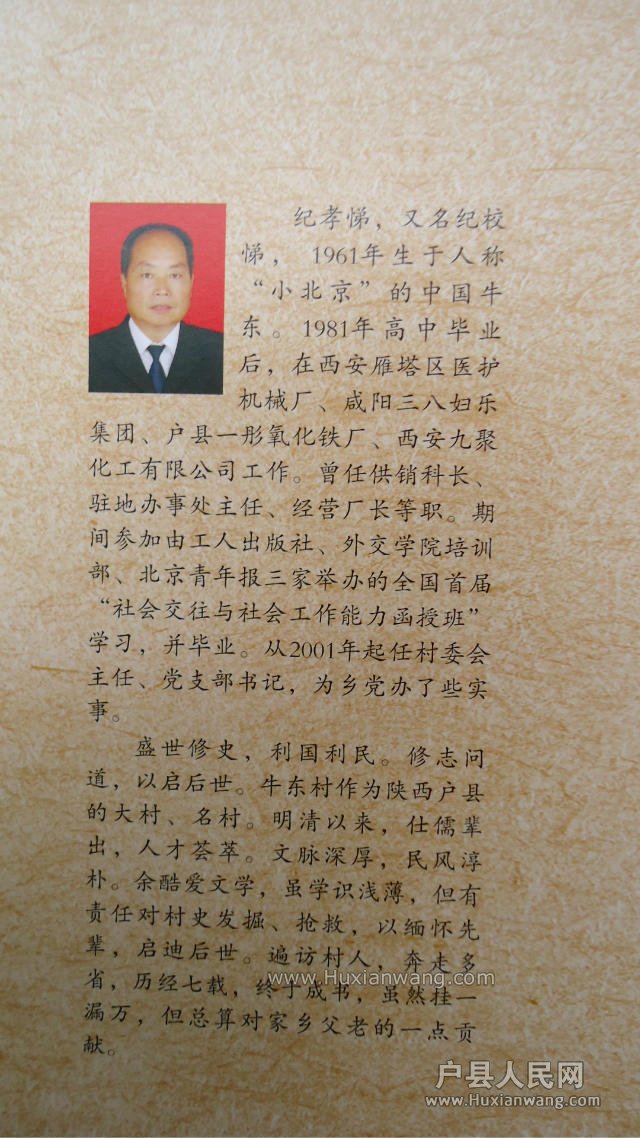 纪孝悌，又名纪校
悌， 1961年生于人称
“小北京”的中国牛
东。1981年高中毕业
后，在西安雁塔区医护
机械厂、咸阳三八妇乐
集团、户县一彤氧化铁厂、西安九聚
化工有限公司工作。曾任供销科长、
驻地办事处主任、经营厂长等职。期
间参加由工人出版社、外交学院培训
部、北京青年报三家举办的全国首届
“社会交往与社会工作能力函授班”
学习，并毕业。从2001年起任村委会
主任、党支部书记，为乡党办了些实
事。
盛世修史，利国利民。修志问
道，以启后世。牛东村作为陕西户县
的大村、名村。明清以来，仕儒辈
出，人才荟萃。文脉深厚，民风淳
朴。余酷爱文学，虽学识浅薄，但有
责任对村史发掘、抢救，以缅怀先
辈，启迪后世。遍访村人，奔走多
省，历经七载，终于成书，虽然挂一
漏万，但总算对家乡父老的一点贡
献。
www.Huxianwang.com
户县人民网
www.Huxianwang.com